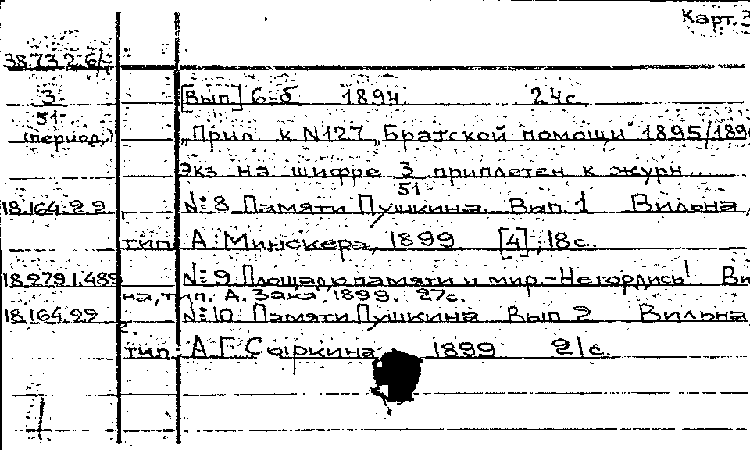 Карт. 3
38.73.2.6/
[Вып.] 6-й 1894. 24с.
3
51
(период.)
„Прил. к N127 „Братской помощи" 1895/189
Экз на шифре 3/51 приплетен к журн...
18.164.2.2 №8 Памяти Пушкина. Вып. 1 Вильна,
тип. А. Минскера, 1899. [4], 18с.
18.279.1.489 №9 Площадь памяти и мир.-Не гордись! Ви
на, тип. А. Зака, 1899. 27с.
18.164.22 №10 Памяти Пушкина Вып 2 Вильна
2.
тип. А.Г. Сыркина 1899 21с.